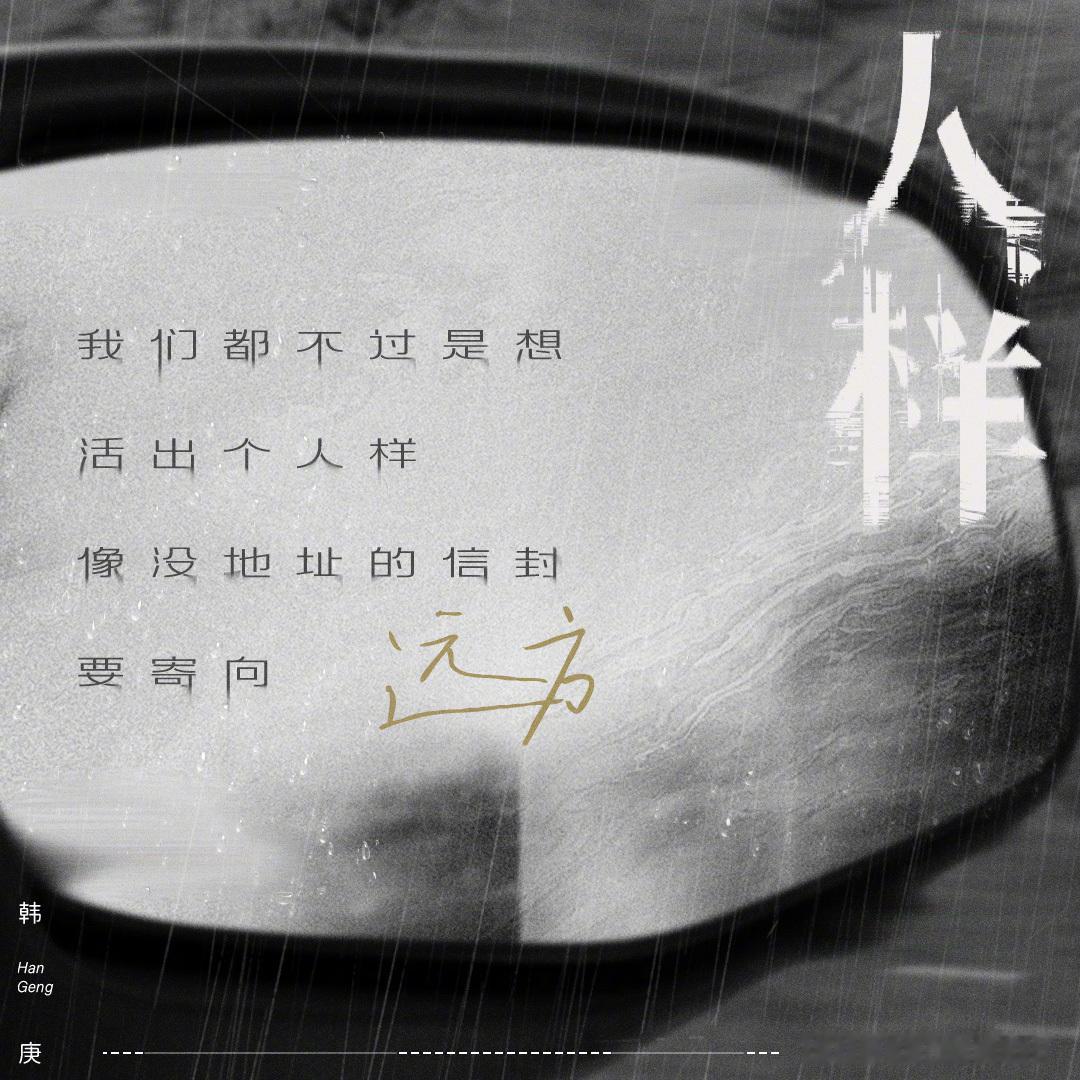 人样
我们都不过是想
活出个人样
像没地址的信封
要寄向 远方
韩
Han
Geng
庚